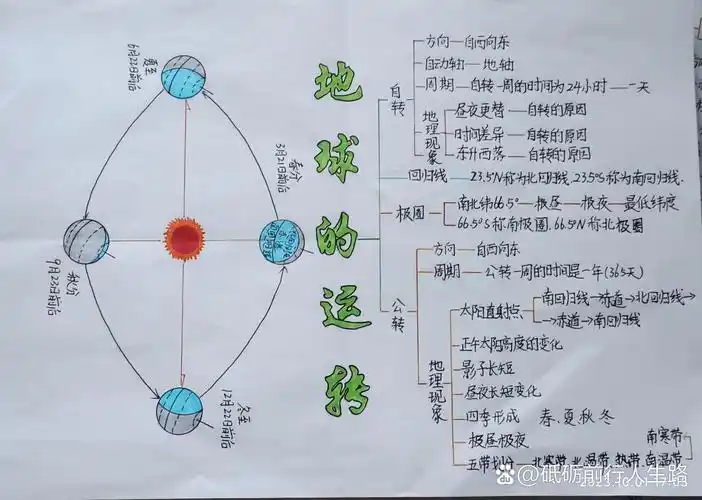 地球的运转
夏至
6月22日前后
春分
3月21日前后
秋分
9月23日前后
冬至
12月22日前后
自转
方向—自西向东
自动轴—地轴
周期—自转一周的时间为24小时—一天
地理现象
昼夜更替—自转的原因
时间差异—自转的原因
东升西落—自转的原因
回归线—23.5°N称为北回归线,23.5°S称为南回归线.
极圈
南北纬66.5°—极昼—极夜—最低纬度
66.5°S称南极圈,66.5°N称北极圈
公转
方向—自西向东
周期—公转一周的时间是一年(365天)
地理现象
太阳直射点
南回归线→赤道→北回归线→
→赤道→南回归线
正午太阳高度的变化
影子长短
昼夜长短变化
四季形成 春、夏秋冬
极昼极夜
五带划分 北寒带 北温带、热带、南温带
南寒带
@砥砺前行人生路